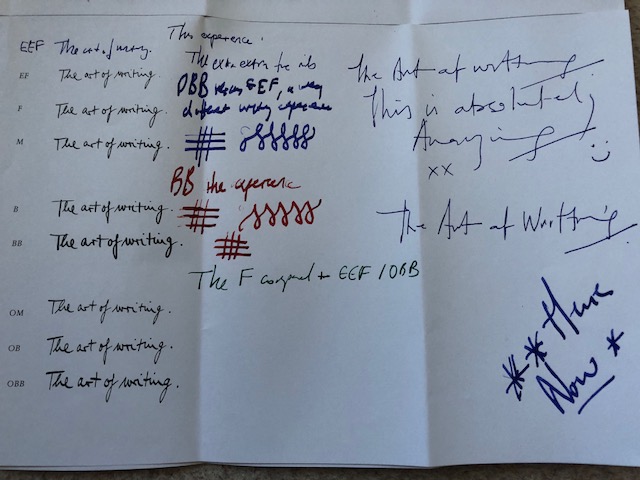 This experience.
EEF The art of
The extra extra fine nib
EF The art of writing.
OBB EEF, a very
F The art of writing.
different writing experience
M The art of writing.
BB the experience
B The art of writing.
BB The art of writing.
The F compared to EEF / OBB
OM The art of writing.
OB The art of writing.
OBB The art of writing.
The Art of writting
This is absolutely
Amazing
xx
The Art of Writting
Here
Now